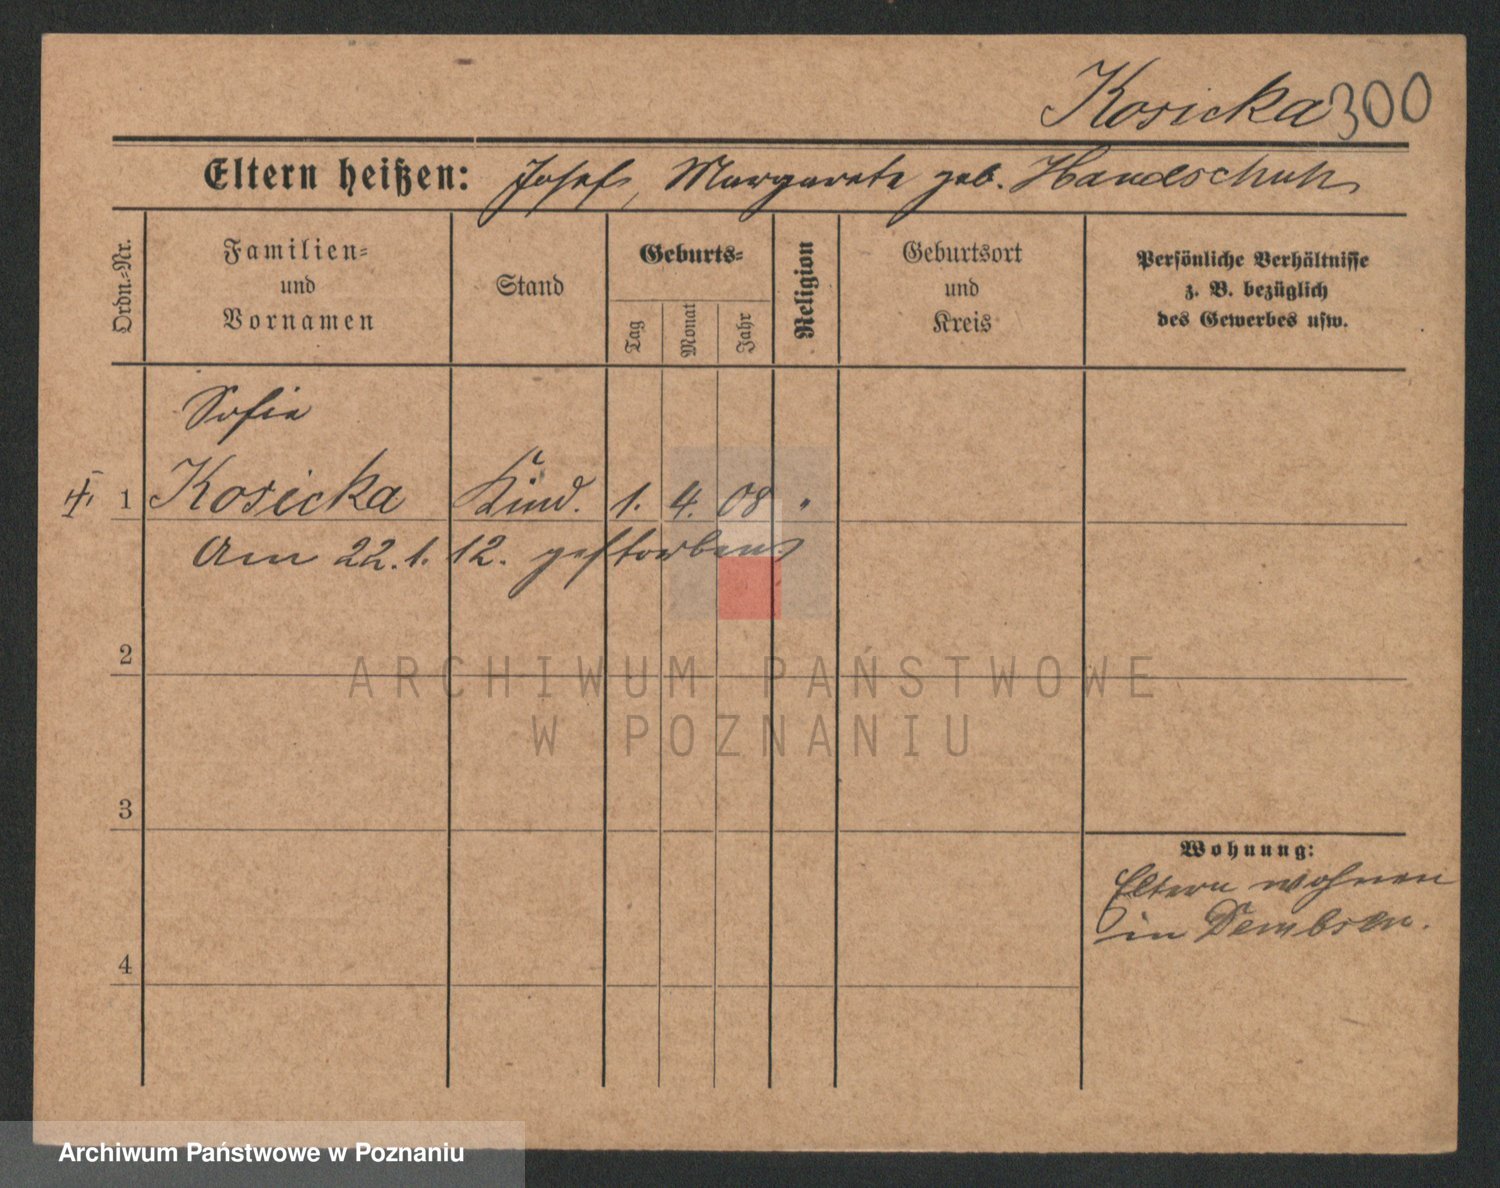 Kosicka 300
Eltern heißen: Josef, Margarete geb. Handschuh
Ordn.-Nr.
Familien-
und
Vornamen
Stand
Geburts-
Tag
Monat
Jahr
Religion
Geburtsort
und
Kreis
Persönliche Verhältnisse
z. B. bezüglich
des Gewerbes usw.
Sofie
1 Kosicka Kind. 1. 4. 08 "
Am 22.1.12. gestorben
2
ARCHIWUM PAŃSTWOWE
W POZNANIU
3
Wohnung:
Eltern wohnen
in Dembsen.
4
Archiwum Państwowe w Poznaniu